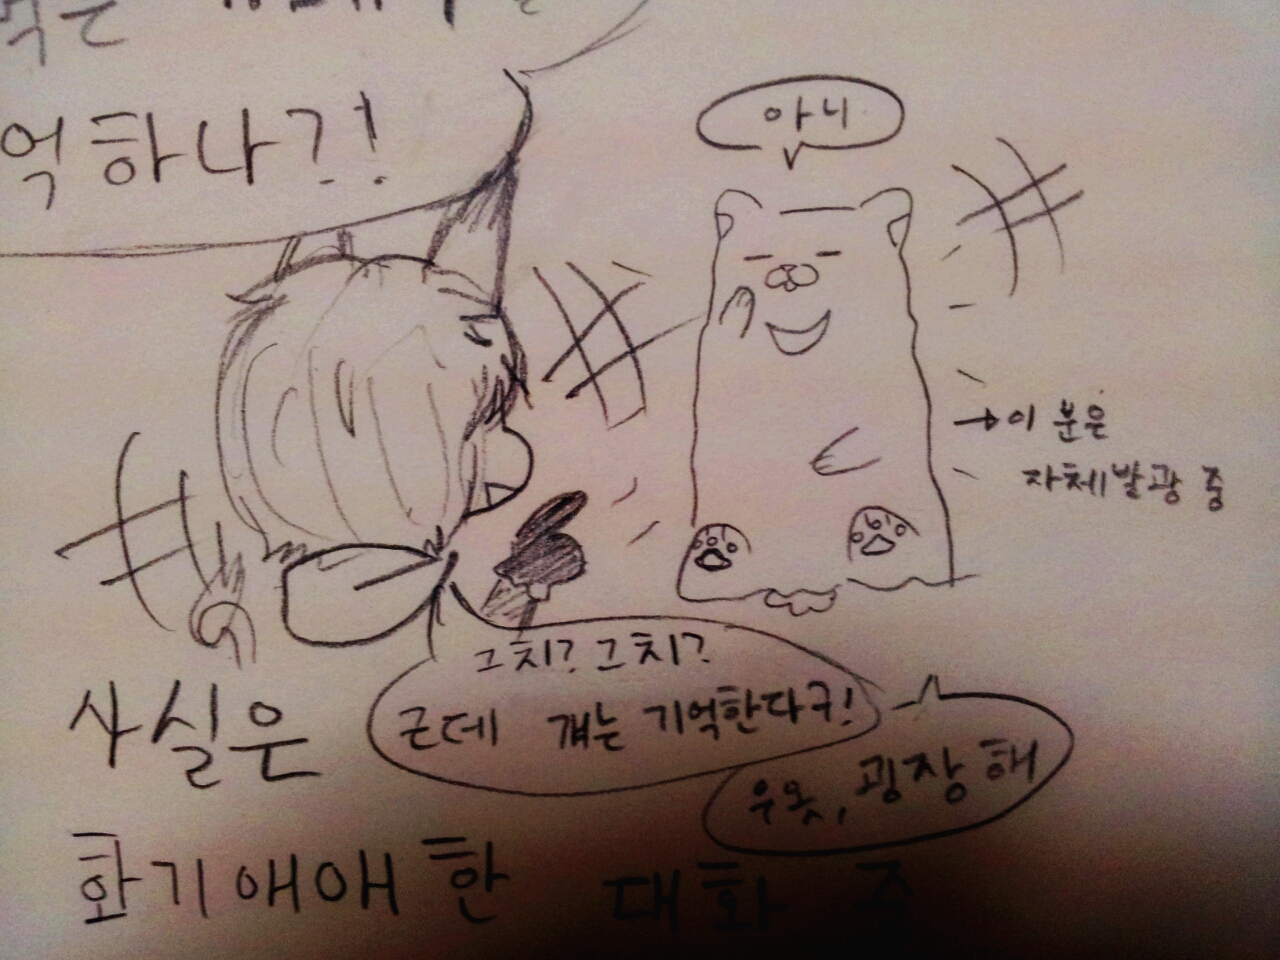 억하나?!
아니
→이 분은
자체발광 중
그치? 그치?
근데 걔는 기억한다구!
우옷, 굉장해
사실은
화기애애한 대화 중